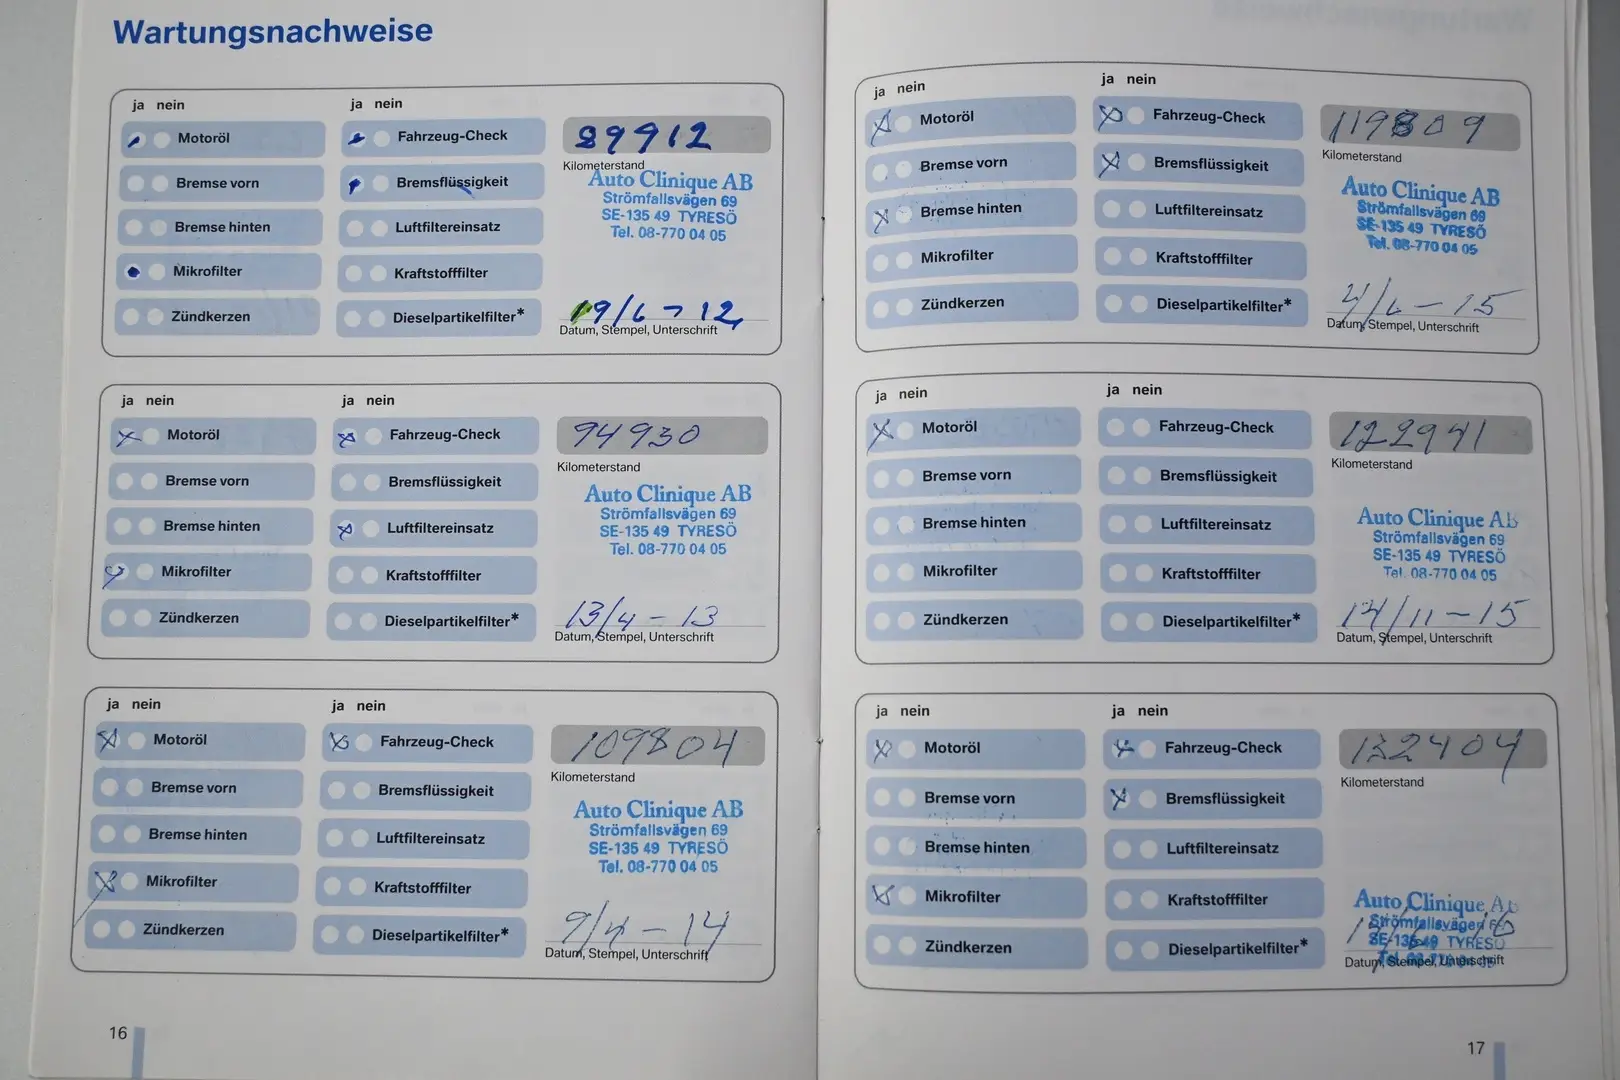 Wartungsnachweise
ja nein
ja nein
Motoröl
Fahrzeug-Check
89912
Kilometerstand
Bremse vorn
Bremsflüssigkeit
Auto Clinique AB
Strömfallsvägen 69
SE-135 49 TYRESÖ
Tel. 08-770 04 05
Bremse hinten
Luftfiltereinsatz
Mikrofilter
Kraftstofffilter
Zündkerzen
Dieselpartikelfilter*
19/6-12
Datum, Stempel, Unterschrift
ja nein
ja nein
Motoröl
Fahrzeug-Check
94930
Kilometerstand
Bremse vorn
Bremsflüssigkeit
Auto Clinique AB
Strömfallsvägen 69
SE-135 49 TYRESÖ
Tel. 08-770 04 05
Bremse hinten
Luftfiltereinsatz
Mikrofilter
Kraftstofffilter
Zündkerzen
Dieselpartikelfilter*
13/4-13
Datum, Stempel, Unterschrift
ja nein
ja nein
Motoröl
Fahrzeug-Check
109804
Kilometerstand
Bremse vorn
Bremsflüssigkeit
Auto Clinique AB
Strömfallsvägen 69
SE-135 49 TYRESÖ
Tel. 08-770 04 05
Bremse hinten
Luftfiltereinsatz
Mikrofilter
Kraftstofffilter
Zündkerzen
Dieselpartikelfilter*
9/4-14
Datum, Stempel, Unterschrift
16
ja nein
ja nein
Motoröl
Fahrzeug-Check
119809
Kilometerstand
Bremse vorn
Bremsflüssigkeit
Auto Clinique AB
Strömfallsvägen 69
SE-135 49 TYRESÖ
Tel. 08-770 04 05
Bremse hinten
Luftfiltereinsatz
Mikrofilter
Kraftstofffilter
Zündkerzen
Dieselpartikelfilter*
4/6-15
Datum, Stempel, Unterschrift
ja nein
ja nein
Motoröl
Fahrzeug-Check
122941
Kilometerstand
Bremse vorn
Bremsflüssigkeit
Auto Clinique AB
Strömfallsvägen 69
SE-135 49 TYRESÖ
Tel. 08-770 04 05
Bremse hinten
Luftfiltereinsatz
Mikrofilter
Kraftstofffilter
Zündkerzen
Dieselpartikelfilter*
14/11-15
Datum, Stempel, Unterschrift
ja nein
ja nein
Motoröl
Fahrzeug-Check
132404
Kilometerstand
Bremse vorn
Bremsflüssigkeit
Bremse hinten
Luftfiltereinsatz
Mikrofilter
Kraftstofffilter
Auto Clinique AB
Strömfallsvägen
SE-135 49 TYRESÖ
Zündkerzen
Dieselpartikelfilter*
Datum, Stempel, Unterschrift
17